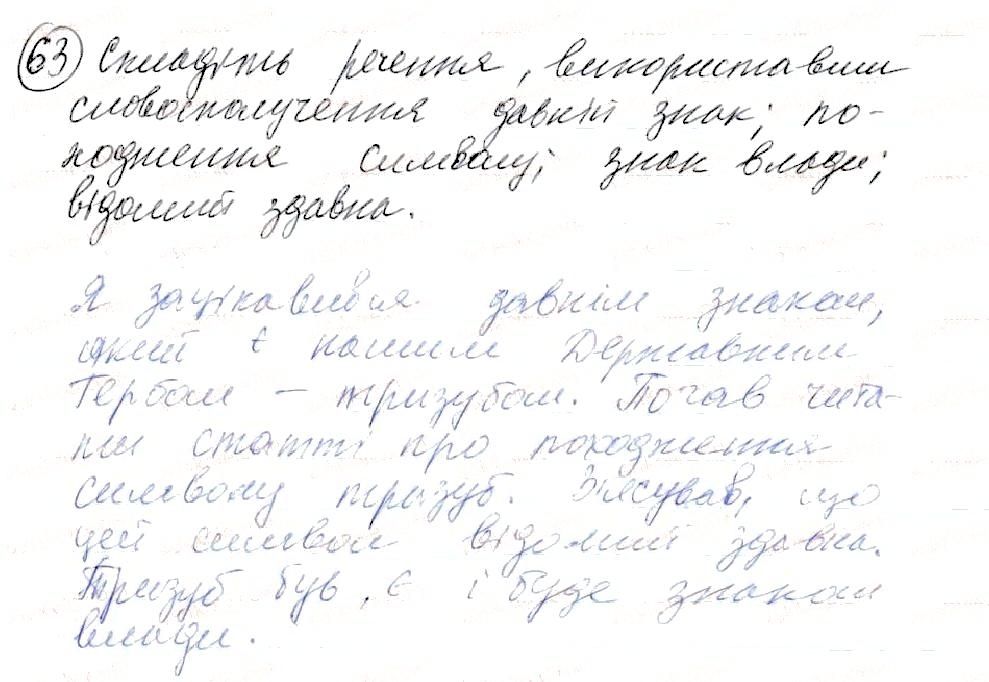 63 Складіть речення, використавши
словосполучення давній знак; по-
ходження символу; знак влади;
відомий здавна.
Я зацікавився давнім знаком,
який є нашим Державним
Гербом – тризубом. Почав чита-
ти статті про походження
символу тризуб. З'ясував, що
цей символ відомий здавна.
Тризуб був, є і буде знаком
влади.